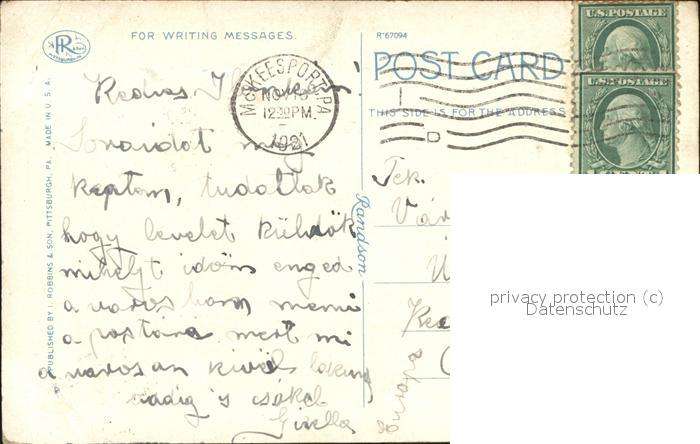 FOR WRITING MESSAGES.
R-67094
POST CARD
THIS SIDE IS FOR THE ADDRESS
U.S. POSTAGE
U.S. POSTAGE
McKEESPORT, PA
NOV
12 30 PM
1921
PUBLISHED BY I. ROBBINS & SON, PITTSBURGH, PA. MADE IN U.S.A.
Randson
Kedves
Soraidat meg
kaptam, tudatlak
hogy levelet küldök
mihelyt időm enged
a városban menni
a postara mert mi
a városan kivül lakunk
addig is csókol
Gizella
Tek.
privacy protection (c)
Datenschutz